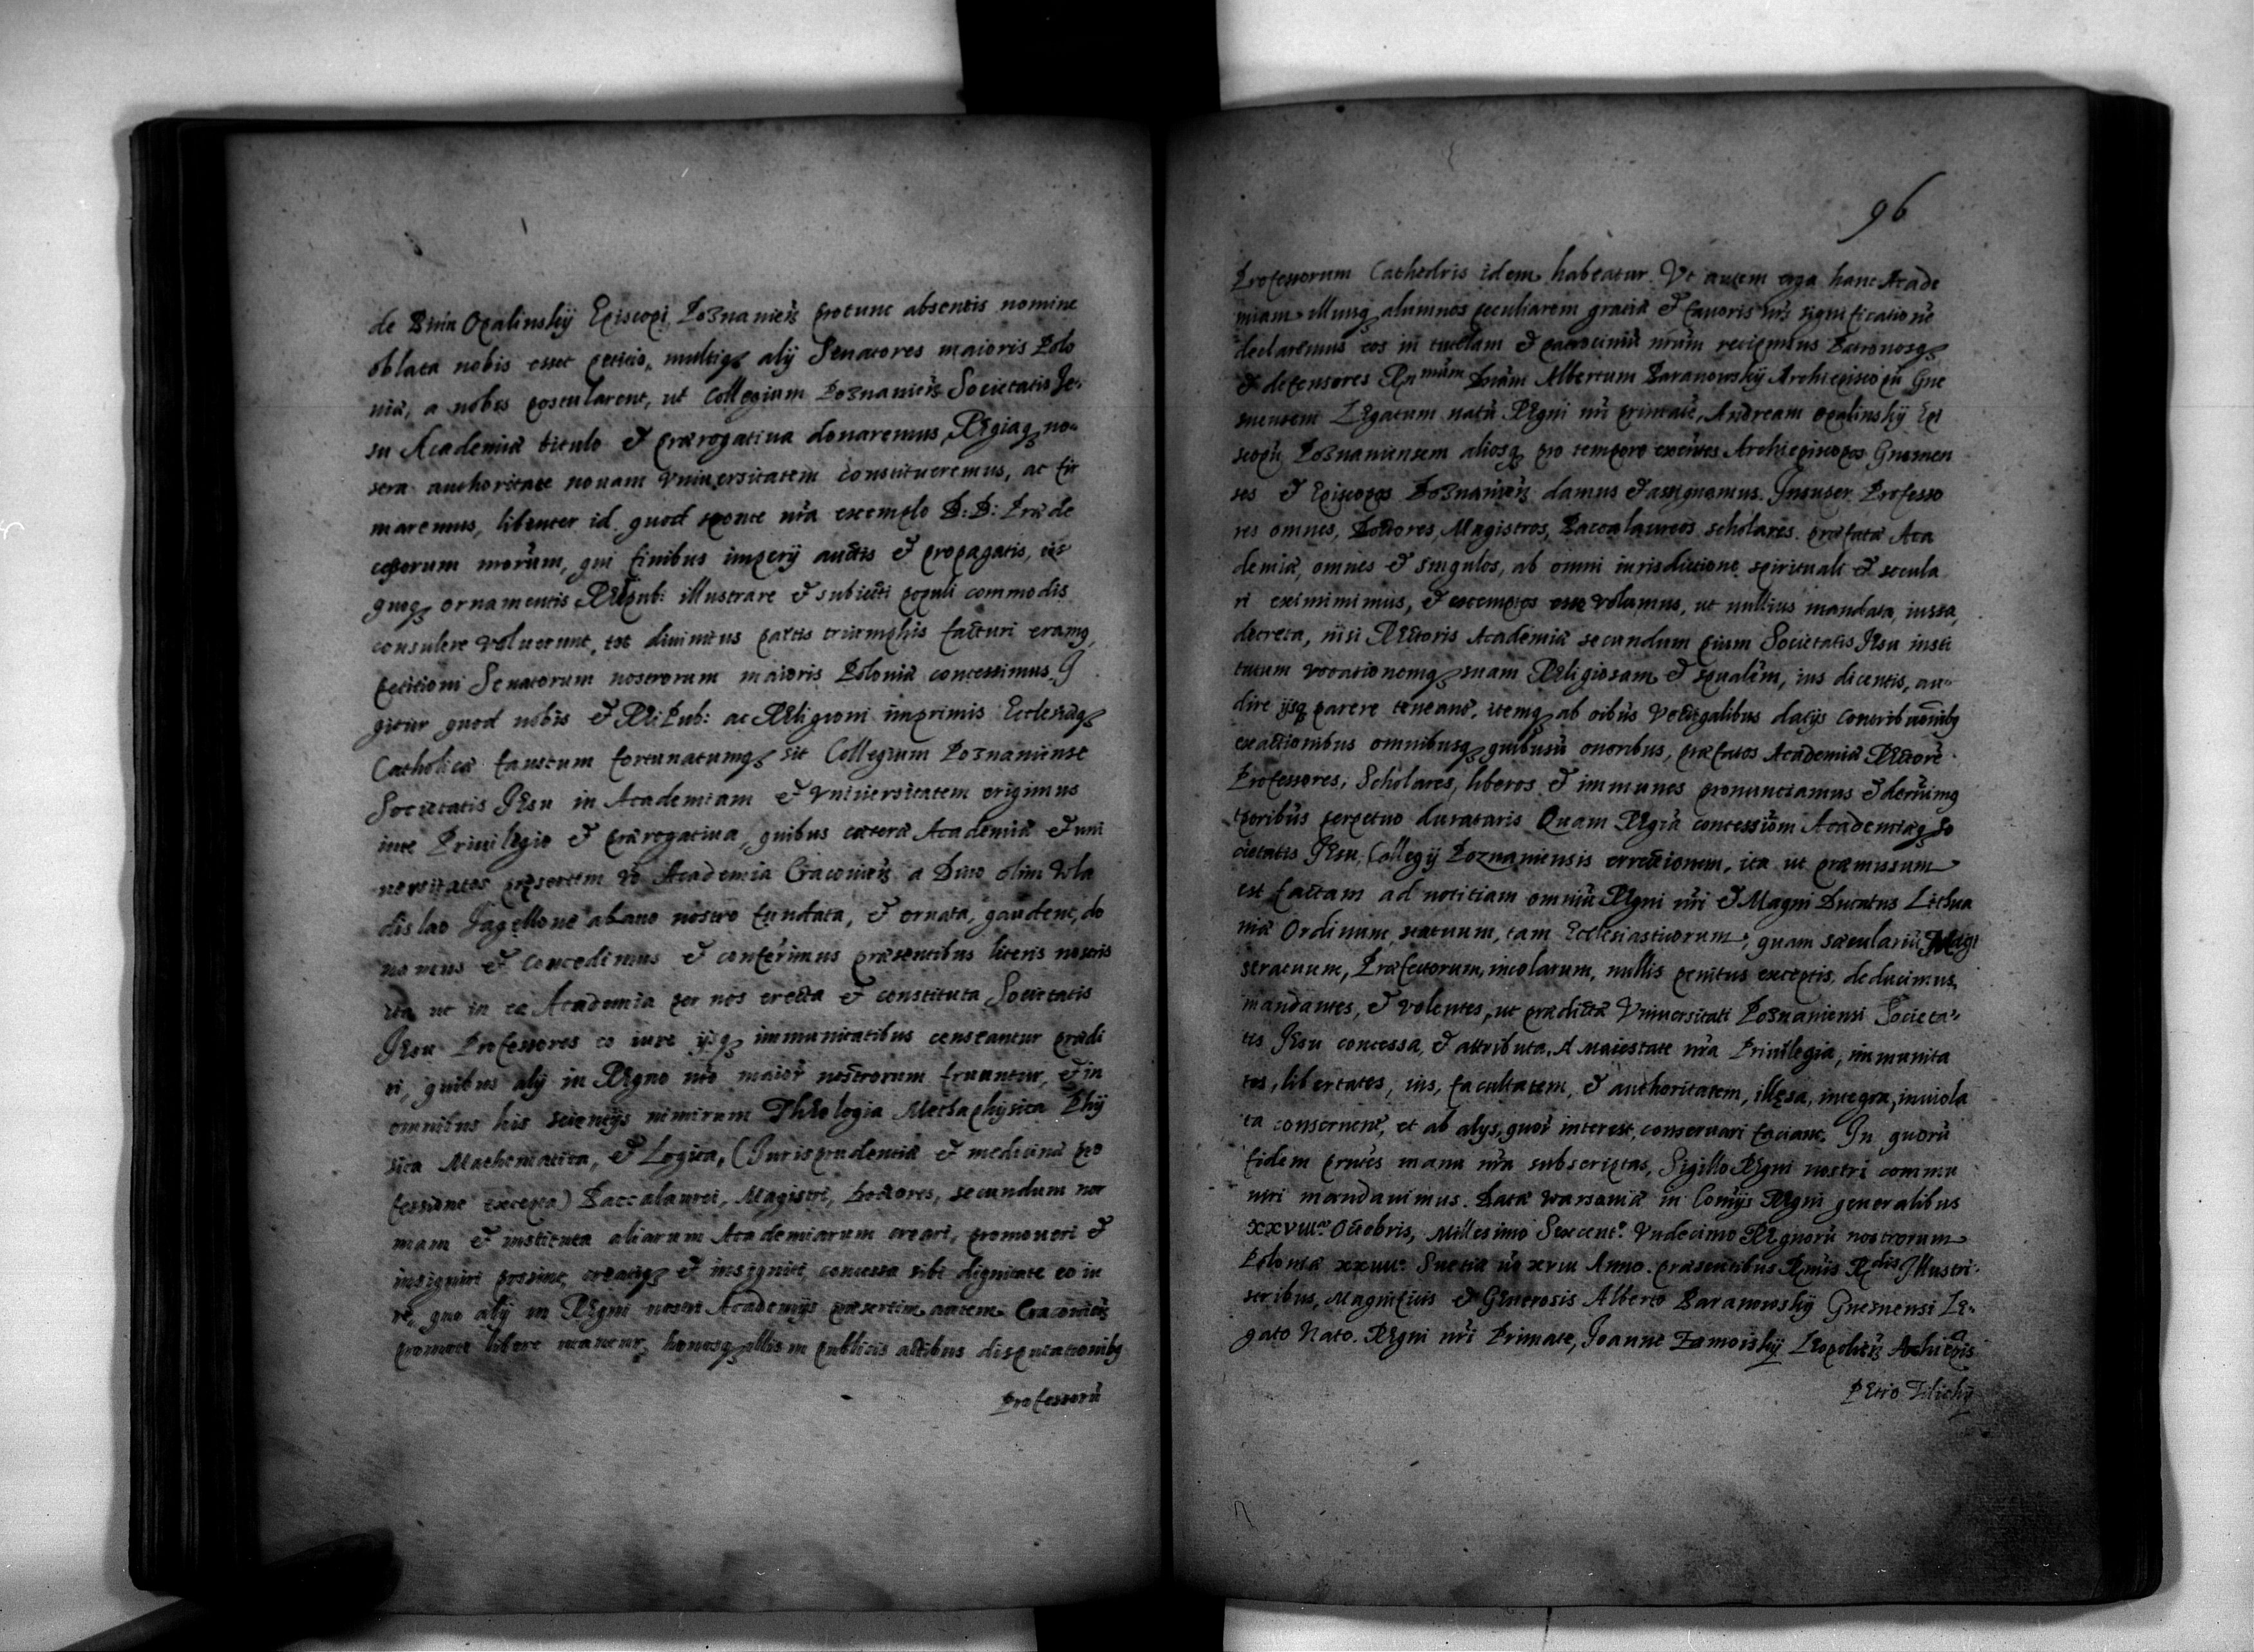 de Bnin Opalinskÿ Episcopi Poznanień protunc absentis nomine
oblata nobis esset petitio, multiq₃ alÿ Senatores maioris Polo
niæ, a nobis postularent, ut Collegium Poznanień Societatis Je:
su Academiæ titulo et prærogatiua donaremus, Regiaq₃ no=
stra authoritate nouam Vniuersitatem constitueremus, ac fir
maremus, libenter id quod sponte nr̃a exemplo D: D: Præde
cessorum nrõrum, qui finibus imperÿ auctis et propagatis, iis
quoq₃ ornamentis Reipub: illustrare et subiecti populi commodis
consulere voluerunt, tot diuinitus partis triumphis facturi eramq,
petitioni Senatorum nostrorum maioris Poloniæ concessimus. I
gitur quod nobis et Rei Pub: ac Religioni imprimis Ecclesiæq₃
Catholicæ faustum fortunatumq₃ sit Collegium Poznaniense
Societatis Jesu in Academiam et Vniuersitatem erigimus
iure Priuilegio et prærogatiua, quibus cæteræ Academiæ et uni
uersitates præsertem vo Academia Cracouień a Diuo olim Vla
dislao Jagellone abauo nostro fundata, et ornata, gaudent, do
namus et concedimus et conferimus præsentibus literis nostris
ita ut in ea Academia per nos erecta et constituta Societatis
Jesu Professores eo iure ÿsq₃ immunitatibus censeantur prædi
ti, quibus alÿ in Regno nrõ maior nostrorum fruuntur, et in
omnibus his scientÿs nimirum Theologia Methaphisica Phÿ
sica Mathematica, et Logica, (Jurisprudentiæ et medicinæ pro
fessione excepta) Baccalaurei, Magistri, Doctores, secundum nor
mam et instituta aliarum Academiarum creari, promoueri et
insigniri possint, creatiq₃ et insigniti, concessa sibi dignitate eo iu
re, quo alÿ in Regni nostri Academÿs præsertim autem Cracouień
promoti libere utantur, honosq₃ illis in publicis actibus disputationibq
Professorũ
96
Professorum Cathedris idem habeatur. Vt autem erga hanc Acade
miam illiusq₃ alumnos peculiarem gratiæ et fauoris nr̃i significationẽ
declaremus eos in tutelam et patrociniũ nrũm recipimus Patronosq₃
et defensores Rñmum Dnũm Albertum Baranowskÿ Archiepiscopũ Gne
snensem Legatum natũ Regni nr̃i primatẽ, Andream Opalinskÿ Epi
scopũ Poznaniensem aliosq₃ pro tempore exñtes Archiepiscopos Gnesnen
ses et Episcopos Poznanień damus et assignamus. Insuper Professo
res omnes, Doctores, Magistros, Baccalaureos, scholares præfatæ Aca
demiæ, omnes et singulos, ab omni iurisdictione spirituali et secula
ri eximimimus, et exemptos esse volumus, ut nullius mandata, iussa,
decreta, nisi Rectoris Academiæ secundum pium Societatis Jesu insti
tutum vocationemq₃ suam Religiosam et sp̃ualẽm, ius dicentis, au=
dire ÿsq₃ parere teneant̃. itemq₃ ab oĩbus Vectigalibus datÿs contributionibq
exactionibus omnibusq₃ quibusũ oneribus, præfatos Academiæ Rectorẽ
Professores, Scholares, liberos et immunes pronunciamus et
tporibũs perpetuo duraturis Quam Regiã concessiom̃ Academiæq₃ So
cietatis Jesu, Collegÿ Poznaniensis erectionem, ita ut præmissum
est factam ad notitiam omniũ Regni nr̃i et Magni Ducatus Lithua
niæ Ordinum, statuum, tam Ecclesiasticorum, quam sæculariũ, Magi
stratuum, Præfectorum, incolarum, nullis penitus exceptis, deducimus,
mandantes, et volentes, ut prædictæ Vniuersitati Poznaniensi Societa=
tis Jesu concessa, et attributa, A Maiestate nr̃a Priuilegia, immunita
tes, libertates, ius, facultatem, et authoritatem, illęsa, integra, inuiola
ta conseruent, et ab alÿs, quor̃ interest, conseruari faciant. In quorũ
fidem pñtes manu nr̃a subscriptas, Sigillo Regni nostri commu
niri mandauimus. Datæ Warsauiæ in Comÿs Regni generalibus
XXVIIIa. Octobris, Millesimo Sexcento. Vndecimo Regnorũ nostrorum
Poloniæ xxiiiio. Suetiæ ũo xviii Anno. præsentibus Rmis Rdis Illustri:
stribus, Magnificis et Generosis Alberto Baranowskÿ Gnesnensi Le=
gato Nato. Regni nr̃i Primate, Joanne Zamoiskÿ Leopolień Archiepis
Petro Tilickÿ